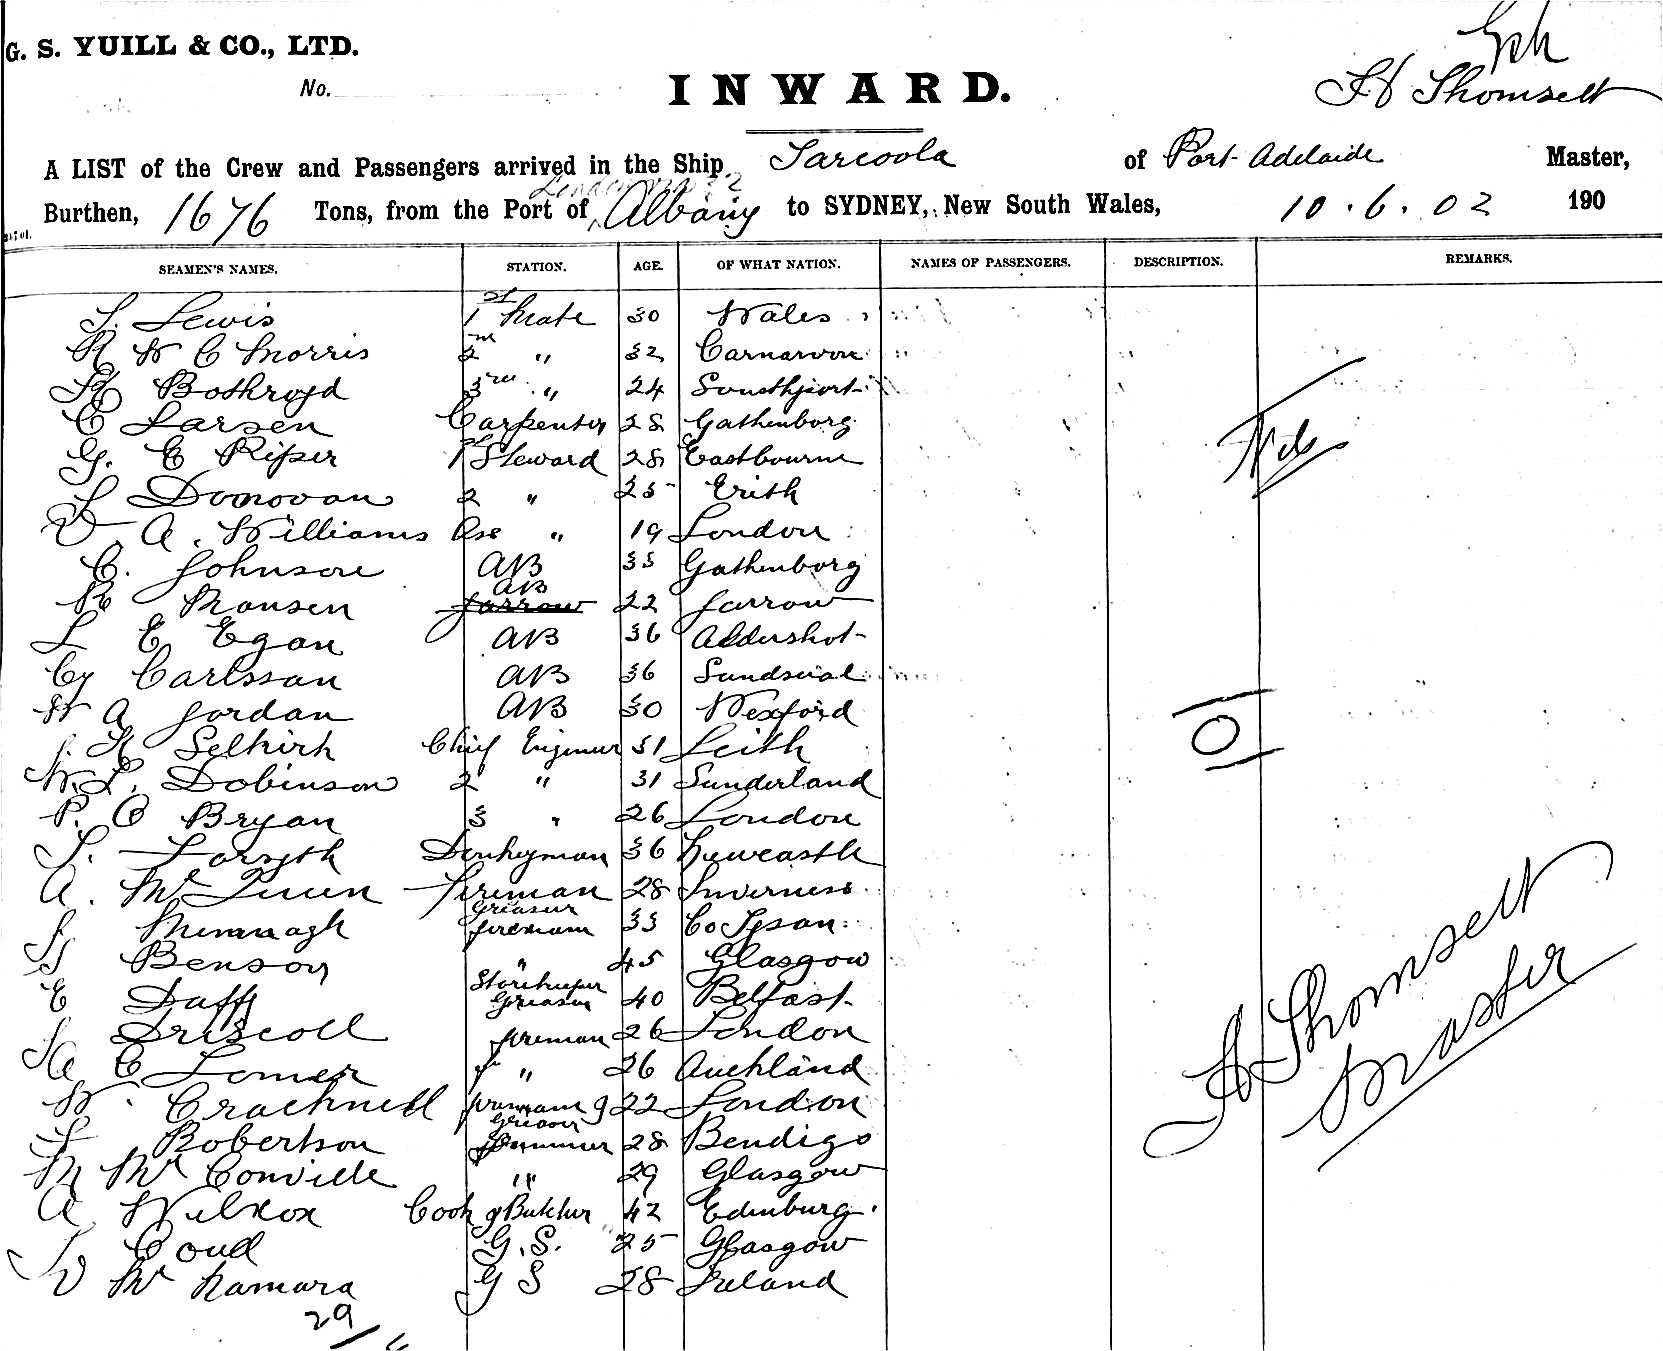 G. S. YUILL & CO., LTD.
No.
INWARD.
Thomsett
A LIST of the Crew and Passengers arrived in the Ship Tarcoola of Port Adelaide Master,
Burthen, 1676 Tons, from the Port of Albany to SYDNEY, New South Wales, 10.6.02 190
SEAMEN'S NAMES. STATION. AGE. OF WHAT NATION. NAMES OF PASSENGERS. DESCRIPTION. REMARKS.
Lewis 1st Mate 30 Wales
R W C Morris 2nd " 32 Carnarvon
H Bothroyd 3rd " 24 Southport
C Larsen Carpenter 28 Gathenborg
G. E Piper 1st Steward 28 Eastbourne
Donovan 2 " 25 Erith
A. Williams Ass " 19 London
C. Johnson AB 33 Gathenborg
Hansen AB Jarrow 22 Jarrow
L E Egan AB 36 Aldershot
Carlsson AB 36 Sundsval
W A Jordan AB 30 Wexford
J. H Selkirk Chief Engineer 31 Leith
W. L. Dobinson 2 " 31 Sunderland
P. C Bryan 3 " 26 London
Forsyth Donkeyman 36 Newcastle
A. McQueen Fireman 28 Inverness
Greaser
Fireman 33
Benson " 45 Glasgow
Storekeeper
E Duff Greaser 40 Belfast
Driscoll fireman 26 London
H C Lomer " 26 Auckland
W. Cracknell fireman 22 London
Greaser
Robertson 28 Bendigo
M McConville " 29 Glasgow
A Wilkox Cook & Butcher 42 Edinburg.
Coud G.S. 25 Glasgow
McNamara G S 28 Ireland
29
Thomsett
Master